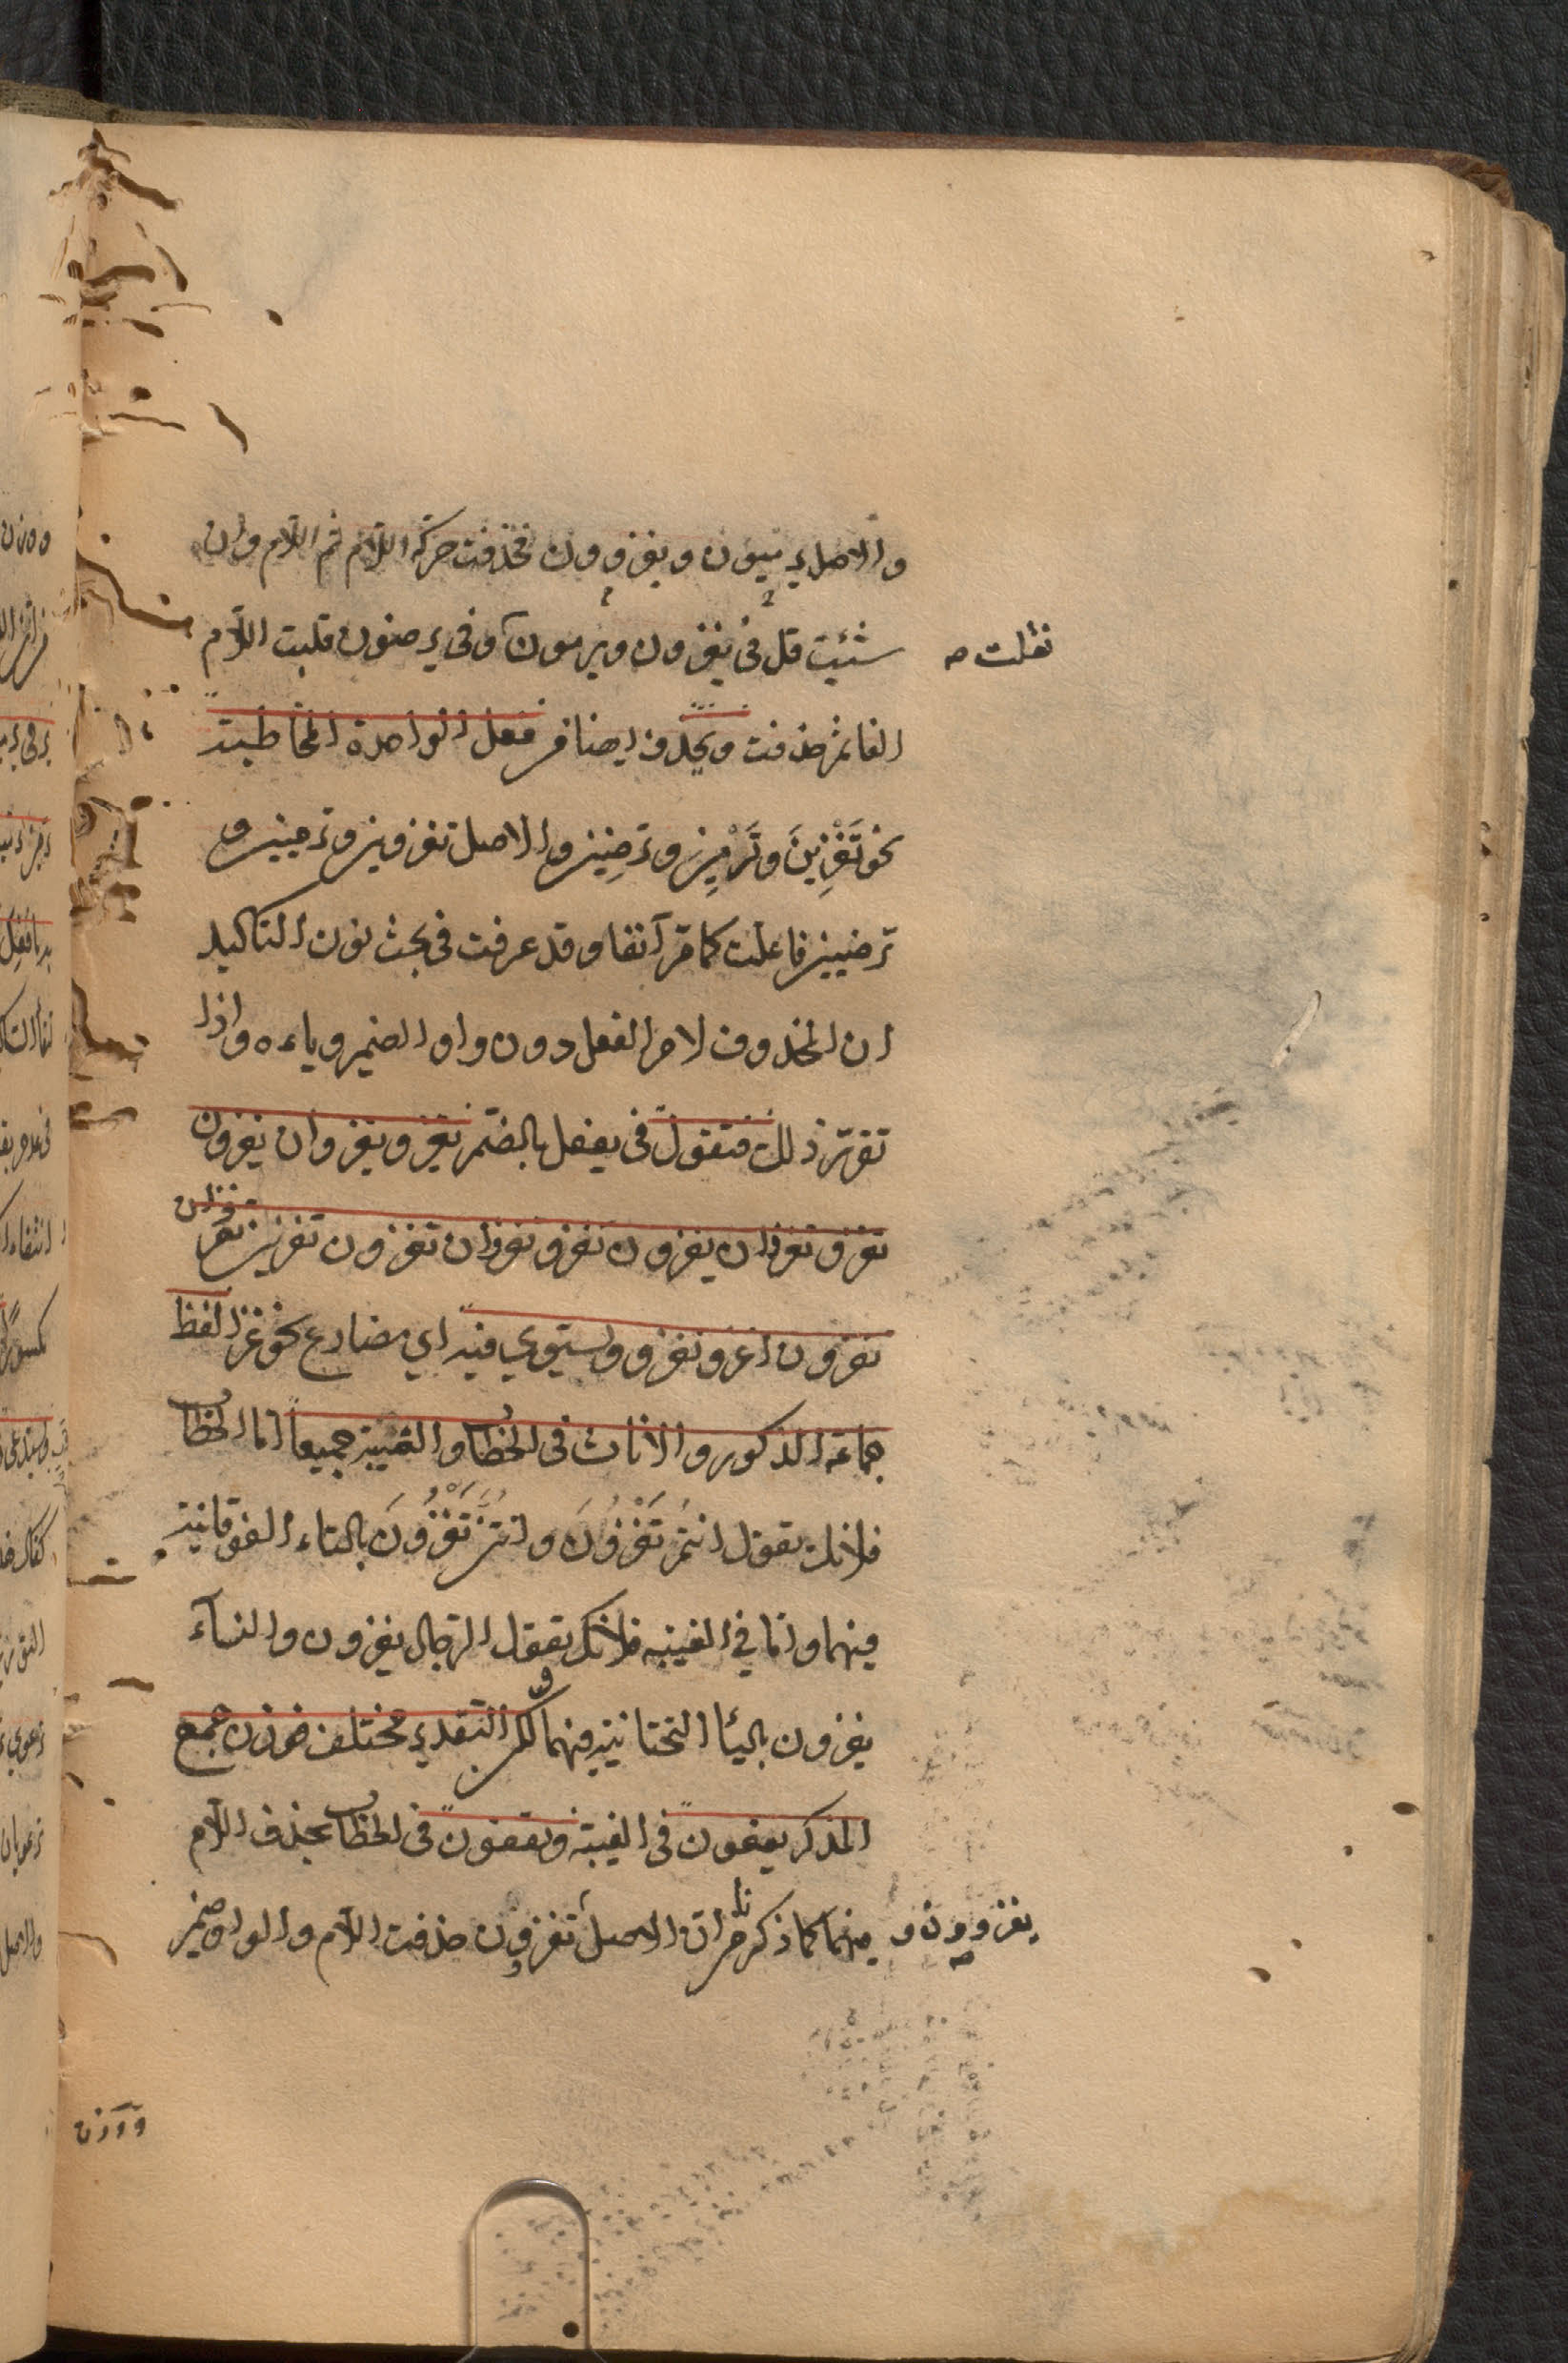 والاصل يرميون ويغزوون فحذفت حركة اللام ثم اللام وان
شئت قل في يغزون ويرمون وفي يرضون قلبت اللام
نقلت صح
الفا ثم حذفت ويحذف ايضا من فعل الواحدة المخاطبة
نحو تَغْزِينَ وتَرْمِين وترضين والاصل تغزوين وترميين و
ترضيين فاعلت كما مر آنفا وقد عرفت في بحث نون التاكيد
ان المحذوف لام الفعل دون واو الضمير وياءه واذا
تقرر ذلك فتقول في يفعل بالضم يغزو يغزوان يغزون
تغزو تغزوان يغزون تغزو تغزوان تغزون تغزين تغزوان
تغزون اغزو نغزو ويستوي فيه اي مضارع نحو غزا لفظ
جماعة الذكور والاناث في الخطاب والغيبة جميعاً اما الخطاب
فلانك تقول انتم تَغْزُونَ وانتن تَغْزُونَ بالتاء الفوقانية
فيهما واما في الغيبه فلانك تقول الرجال يغزون والنسآء
يغزون باليا التحتانية فيهما لكن التقدير مختلف فوزن جمع
المذكر يفعون في الغيبة وتفعون في الخطاب بحذف اللام
فيهما كما ذكرنا من ان الاصل تغزوون حذفت اللام والواو ضمير
يغزوون و صح
ووزن